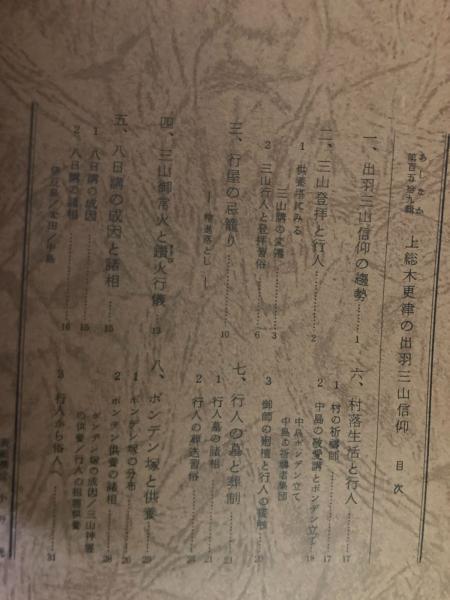 あしなか
第百五拾九輯 上総木更津の出羽三山信仰 目次
一、出羽三山信仰の趨勢……1
二、三山登拝と行人……2
1 供養塔にみる
三山講の変遷……3
2 三山行人と登拝習俗……6
三、行屋の忌籠り……10
―精進落とし―
四、三山御常火と鑽火行儀……13
五、八日講の成因と諸相……15
1 八日講の成因……15
2 八日講の諸相……16
六、村落生活と行人……17
1 村の祈禱師……17
2 中島の敬愛講とボンデン立て……18
中島ボンデン立て
中島の祈禱者集団
3 御師の廻檀と行人の接触……20
七、行人の墓と葬制……21
1 行人墓の諸相……21
2 行人の葬送習俗……24
八、ボンデン塚と供養……25
1 ボンデン塚の分布……26
2 ボンデン供養の諸相……28
ボンデン塚の成因/三山神霊
の供養/行人の相互供養
3 行人から俗人へ……31